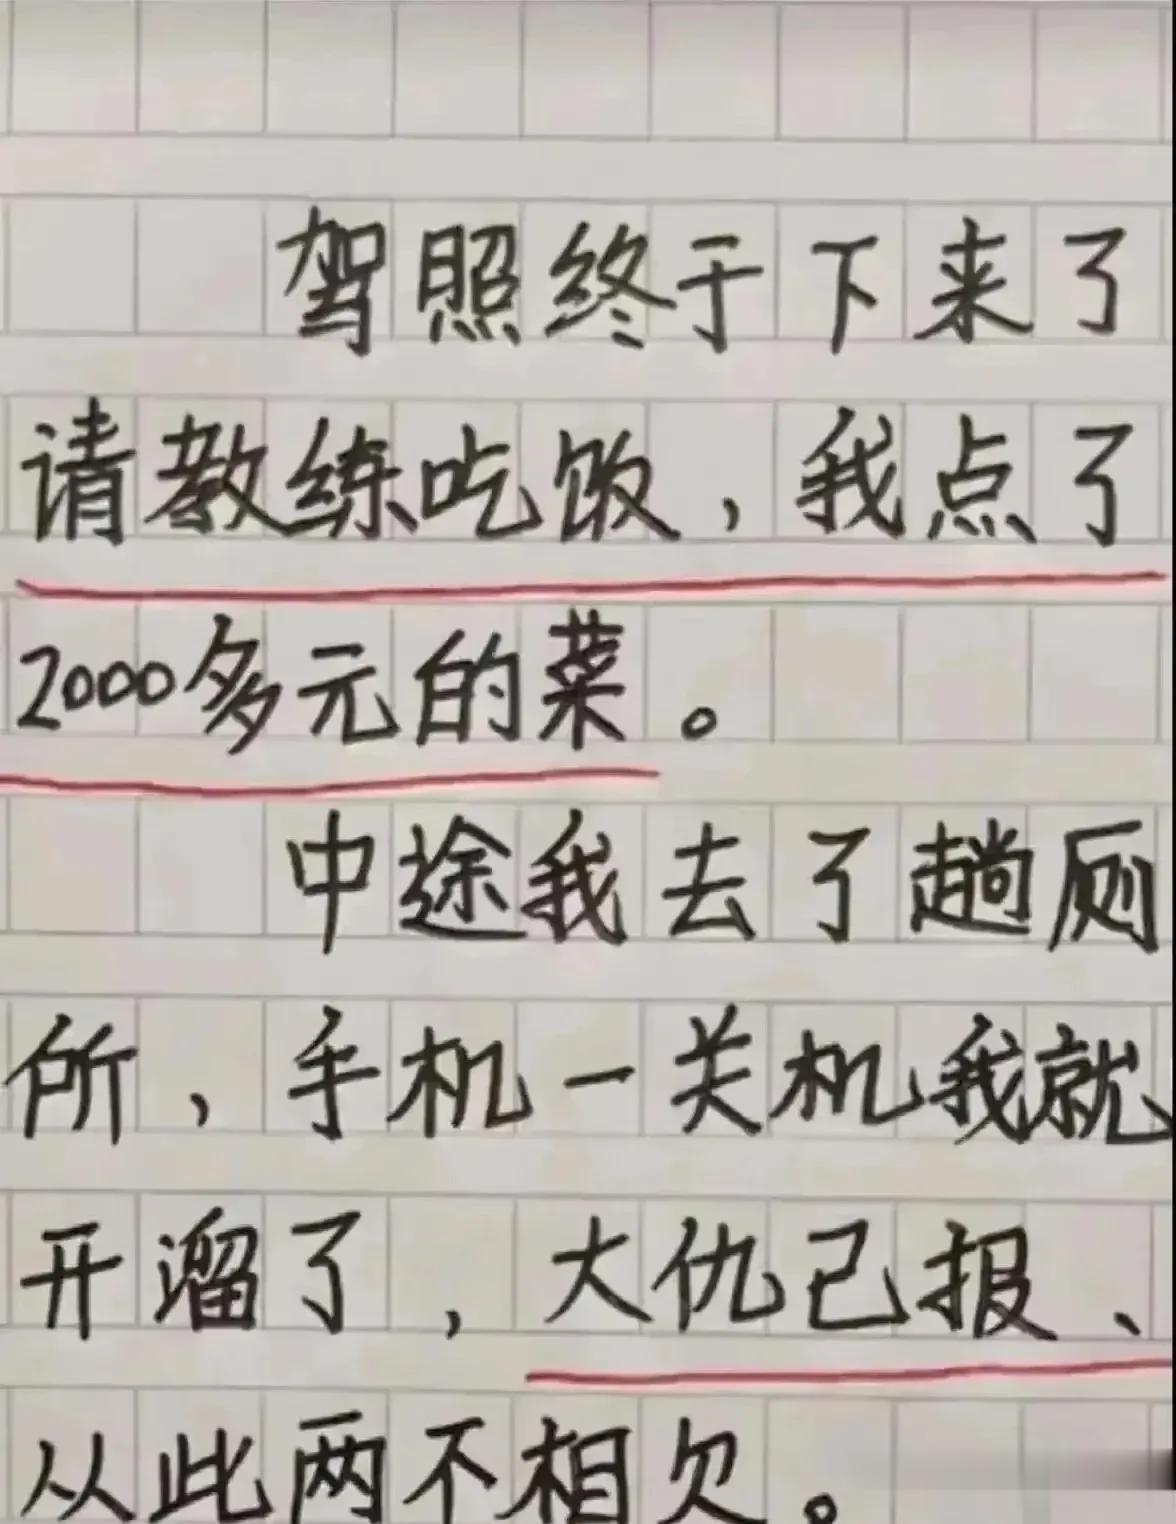 驾照终于下来了
请教练吃饭，我点了
2000多元的菜。
中途我去了趟厕
所，手机一关机我就
开溜了，大仇已报、
从此两不相欠。